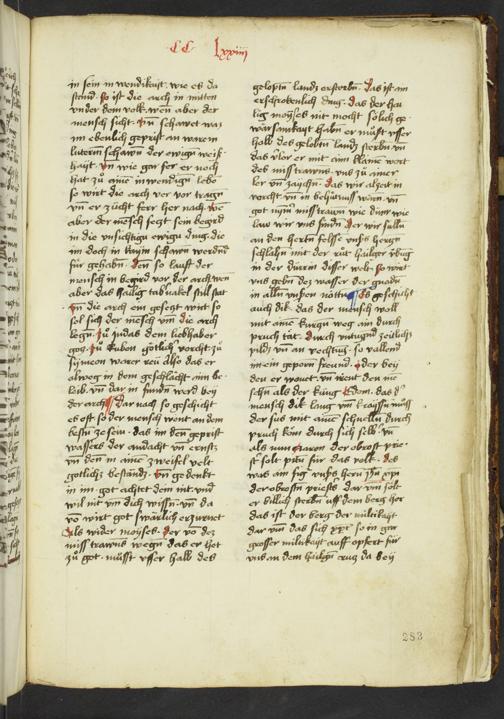 CC Lxxiiij
in sein inwendikayt · wie es da
stend · so ist die arch in mitten
vnder dem volk · wen̄ aber der
mensch sicht ·
im ewlich gepist an warem
luterm schawen der ewigen weis
hayt · vn̄ wie gar fer er noch
hat zu ainē inwendigen lebē
so wirt die arch ver vor tragen
vn̄ er zücht ferr her nach · wen̄
aber der mēsch setzt sein begird
in die vnsichtigen ewigen ding · die
im doch in kaym schawen werdēt
für gehabn̄ · den̄ so lauft der
mensch in begird vor der arch wen̄
aber das haillig tabnakel still stat
vn̄ die arch ein gesetzt wirt so
sol sich der mēsch vm̄ die arch
legen · zu judas dem liebhaber
gotz · zu Ruben götlich vorcht · zu
Symeon warer reü Also das er
alweg in dem geschlächt aim be
leib · vn̄ dar in funden werd bey
der arch ¶ Dar nach so geschicht
es oft so der mensch wont an dem
das im den geprist
wassers der andacht vn̄ ernstz
vn̄ den̄ in ainē zweifel velt
götlichz beystandz · vn̄ gedenkt
in im got achtet dem nit vnd
wil nit vm̄ dich wissen · vn̄ da
vō wirt got swärlich erzurnet
Als wider moyses · der vō dez
misstrawens wegen das er het
zu got · müsst vsser halb des
gelopten landz ersterben · Das ist ain
erschrokenlich ding · das der hai
lig moyses nit mocht sölich ge
warsamkayt haben er müst vsser
halb des gelobten landz sterben vn̄
das vlor er mit aim klaine wort
des misstrawens · vns zu ainer
ler vn̄ zaychen · das wir alzeit in
vorcht vn̄ in behütnuss wan vn̄
got nym̄ misstrawen wie dürr wie
law wir vns finden · der wir sullen
an den herten felsse vnsers hertzen
schlahen mit der rüt hailiger übung
in der dürren diser welt · so wirt
vns geben dez wasser der gnaden
in allen vnsern nötten ¶ Es geschicht
auch dik · das der mensch woll
mit ainē kurtzen weg ain durch
pruch tät · durch vntugend zeitlich
pild · vn̄ an rechtung · so vallend
in ein geporn freund · oder bey
den er wonet · vn̄ nent den ne
schen als der küng Edom · das d'
mensch dik lang vm̄ kraysen müss
der süs mit ainē schnellen durch
pruch kom durch sich selb · vn̄
als nun Aaron der obrost prie
st' solt peten für das volk · das
was ain fig' vnsers herren jhū xpi
der obrosten priesters dar vm̄ solt
er billich sterben uff dem berg hor
das ist der berg der miltikayt
dar vm̄ das sich xpc so in gar
grosser miltikayt auff opfert für
vns an dem hailigen crutz da bey
283